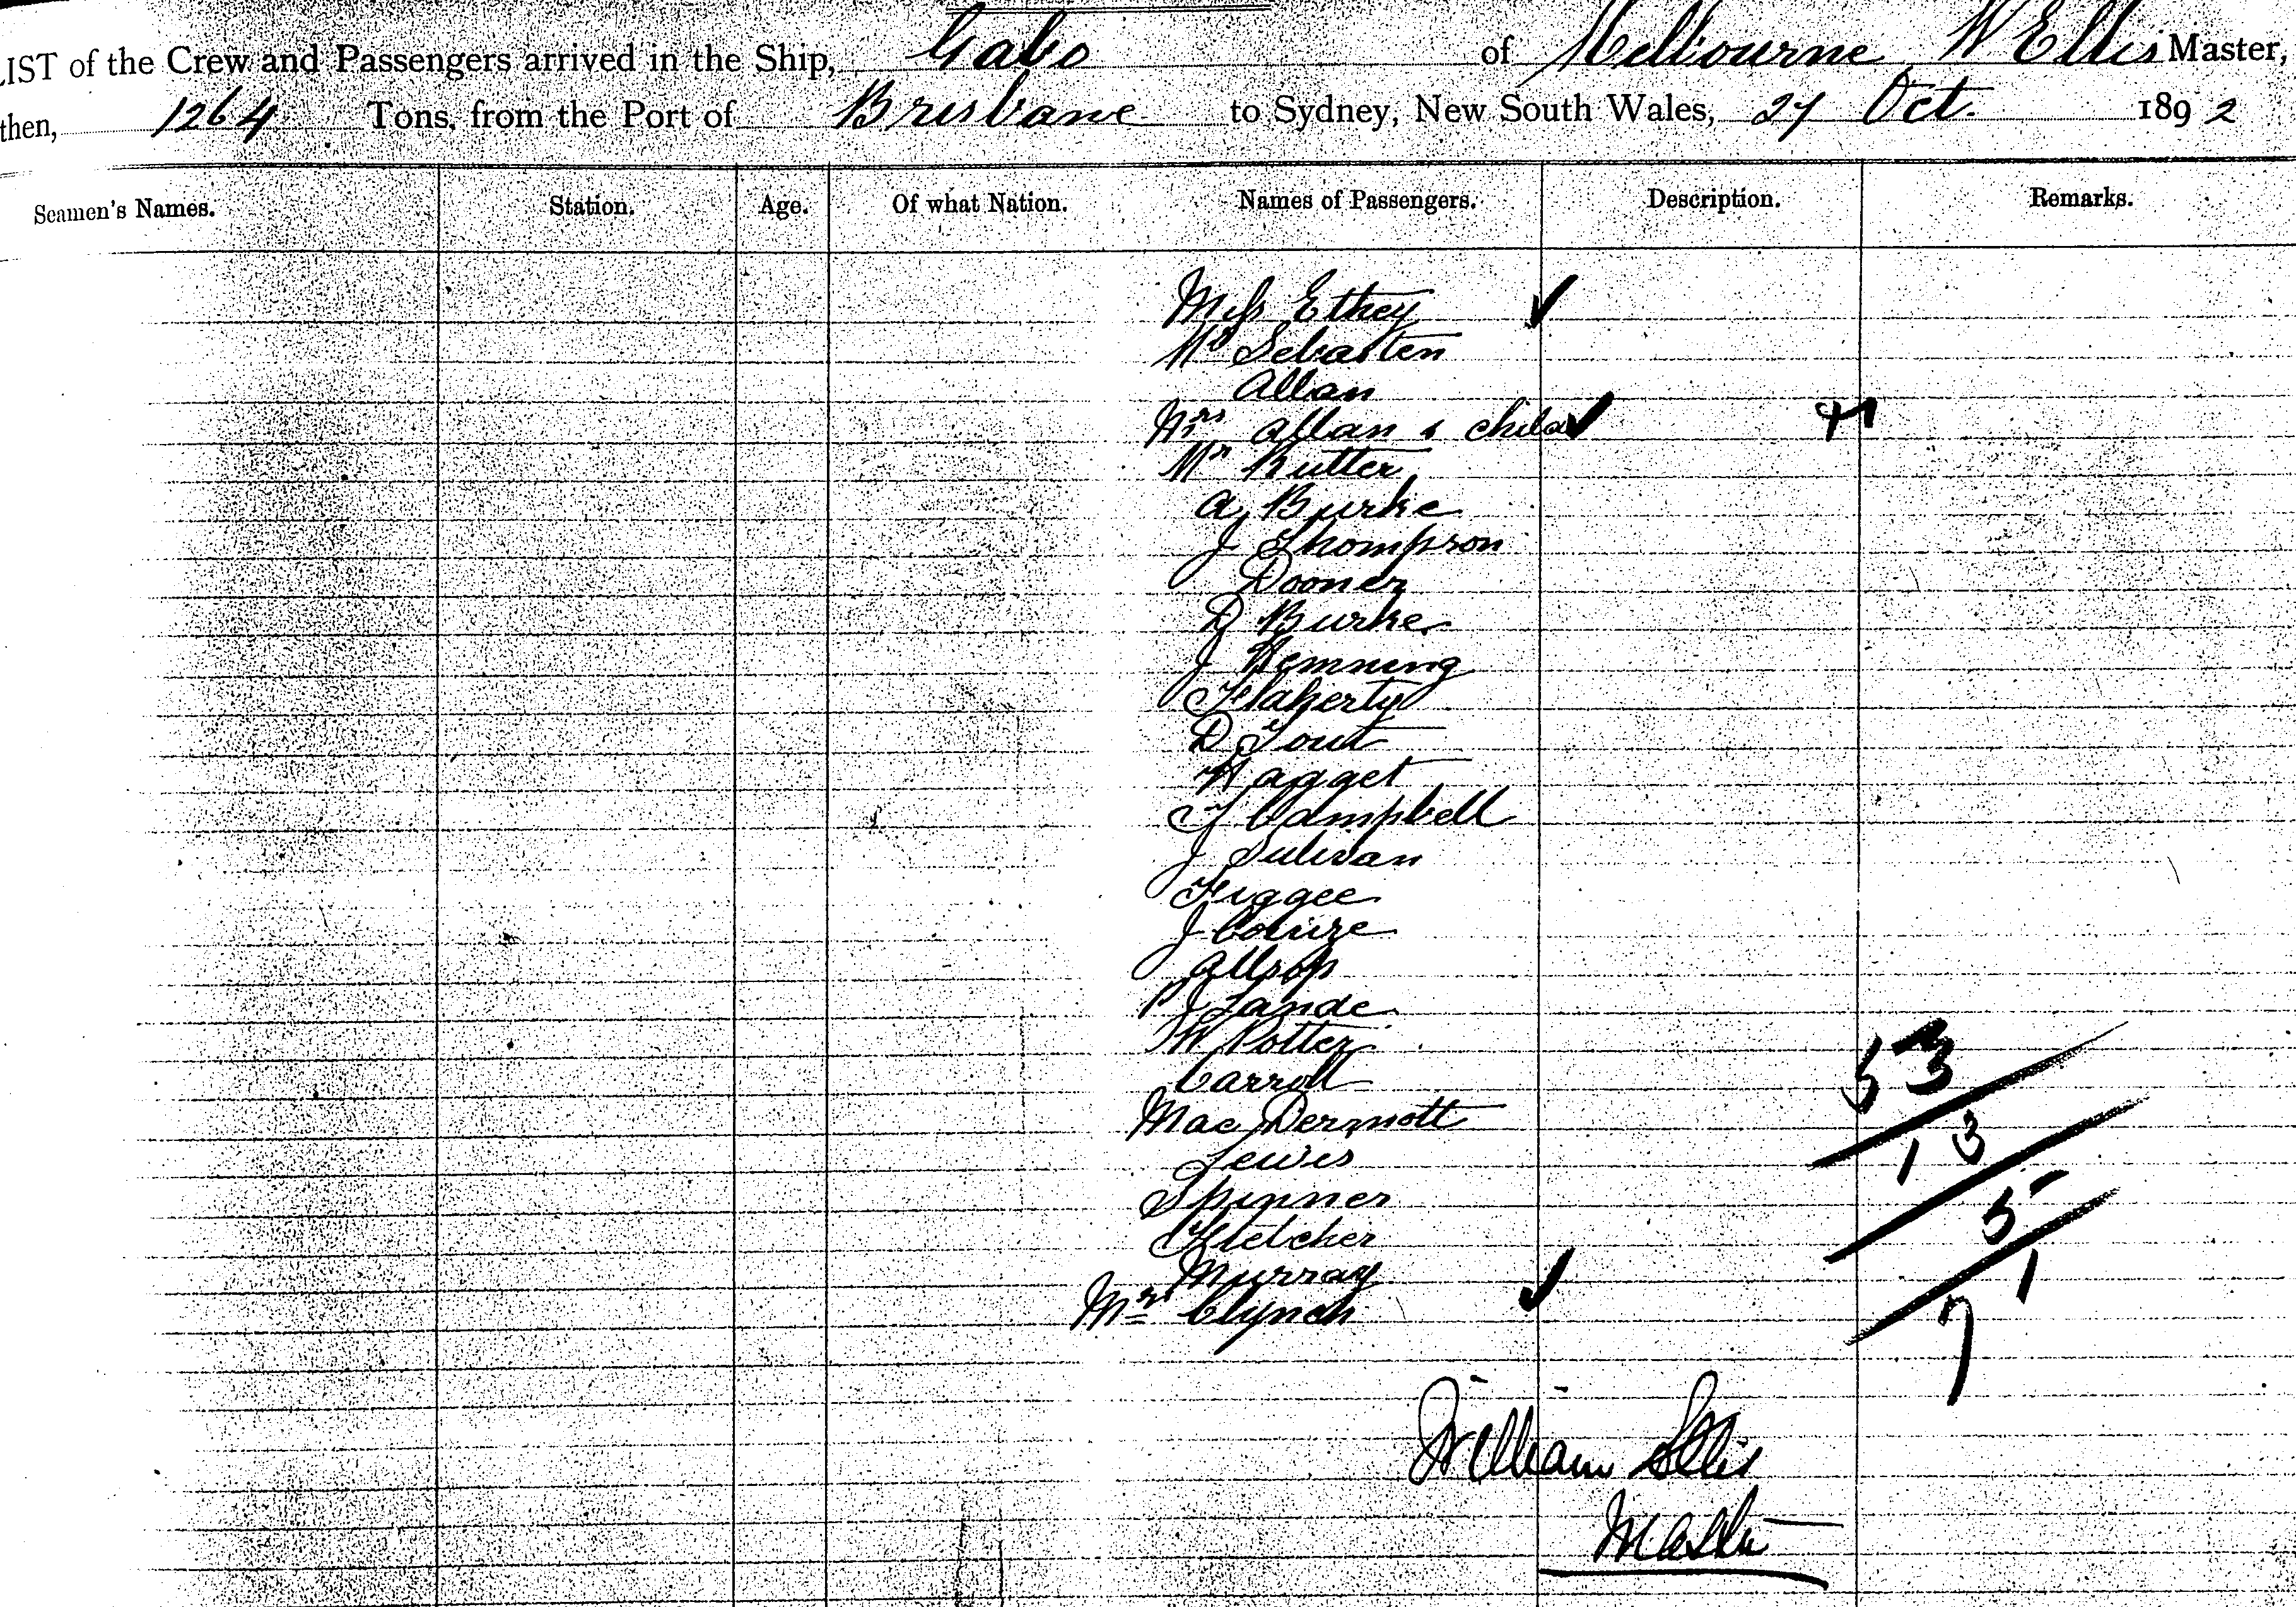 LIST of the Crew and Passengers arrived in the Ship, Gabo of Melbourne W Ellis Master,
then, 1264 Tons, from the Port of Brisbane to Sydney, New South Wales, 27 Oct. 1892
Seamen's Names. Station. Age. Of what Nation. Names of Passengers. Description. Remarks.
Miss Ethey
Mr Sebasten
Allan
Mrs Allan & child
Mr Rutter
A Burke
J Thompson
Dooner
D Burke
J Hemning
Flaherty
D Tout
Hagget
T Campbell
J Sulivan
Figgee
J
Allsop
P J Lande
W Potter
Carroll
Mac Dermott
Lewis
Spinner
Fletcher
Murray
Mrs Clynch
53
13
5
1
7
William Ellis
Master